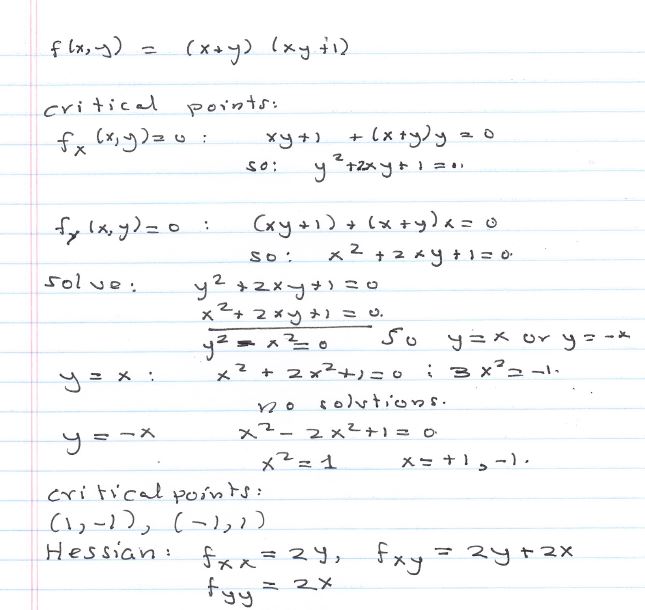 f(x,y) = (x+y) (xy+1)
critical points:
fx (x,y)=0 : xy+1 + (x+y)y = 0
so: y²+2xy+1=0.
fy (x,y)=0 : (xy+1)+(x+y)x=0
so: x²+2xy+1=0.
solve: y²+2xy+1=0
x²+2xy+1=0.
y²-x²=0 So y=x or y=-x
y=x: x²+2x²+1=0 ; 3x²=-1.
no solutions.
y=-x x²-2x²+1=0.
x²=1 x=+1,-1.
critical points:
(1,-1), (-1,1)
Hessian: fxx=2y, fxy=2y+2x
fyy=2x